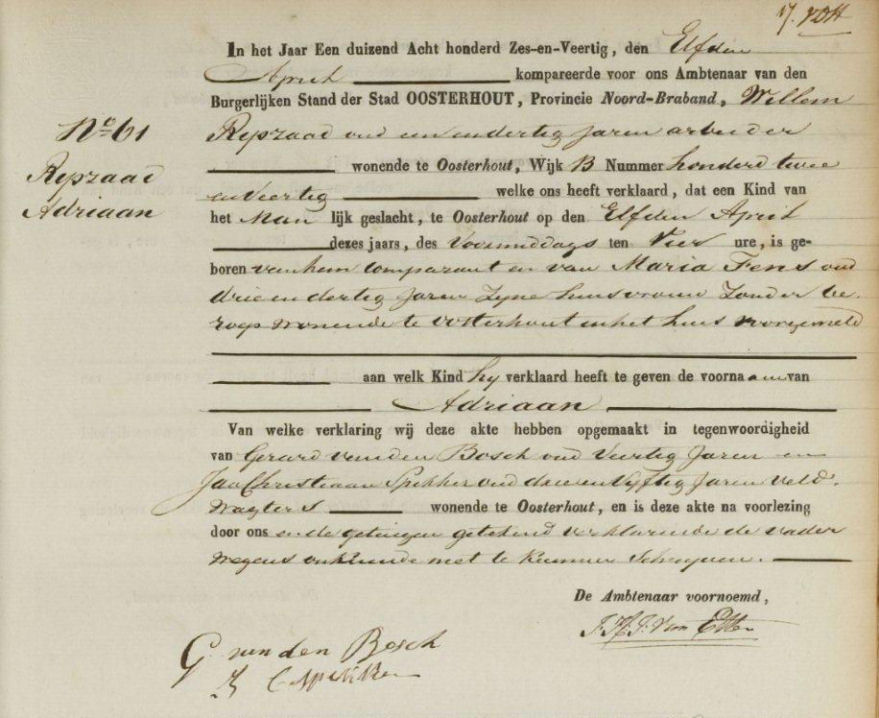 In het Jaar Een duizend Acht honderd Zes-en-Veertig, den Elfden
April kompareerde voor ons Ambtenaar van den
Burgerlijken Stand der Stad OOSTERHOUT, Provincie Noord-Braband, Willem
Nº 61
Rypzaad oud een en dertig Jaren arbeider
wonende te Oosterhout, Wijk B Nummer honderd twee
Rypzaad
en Veertig welke ons heeft verklaard, dat een Kind van
Adriaan
het Man lijk geslacht, te Oosterhout op den Elfden April
dezes jaars, des Voormiddags ten Vier ure, is ge-
boren van hem Comparant en van Maria Fens oud
drie en dertig Jaren Zyne huisvrouw Zonder be-
roep wonende te oosterhout in het huis voorgemeld
aan welk Kind hy verklaard heeft te geven de voornaam van
Adriaan
Van welke verklaring wij deze akte hebben opgemaakt in tegenwoordigheid
van Gerard van den Bosch oud Veertig Jaren en
Jan Christiaan Spekker oud drie en Vyftig Jaren veld-
wagters wonende te Oosterhout, en is deze akte na voorlezing
door ons en de getuigen getekend verklarende de vader
wegens onkunde niet te kunnen Schryven.
De Ambtenaar voornoemd,
G van den Bosch